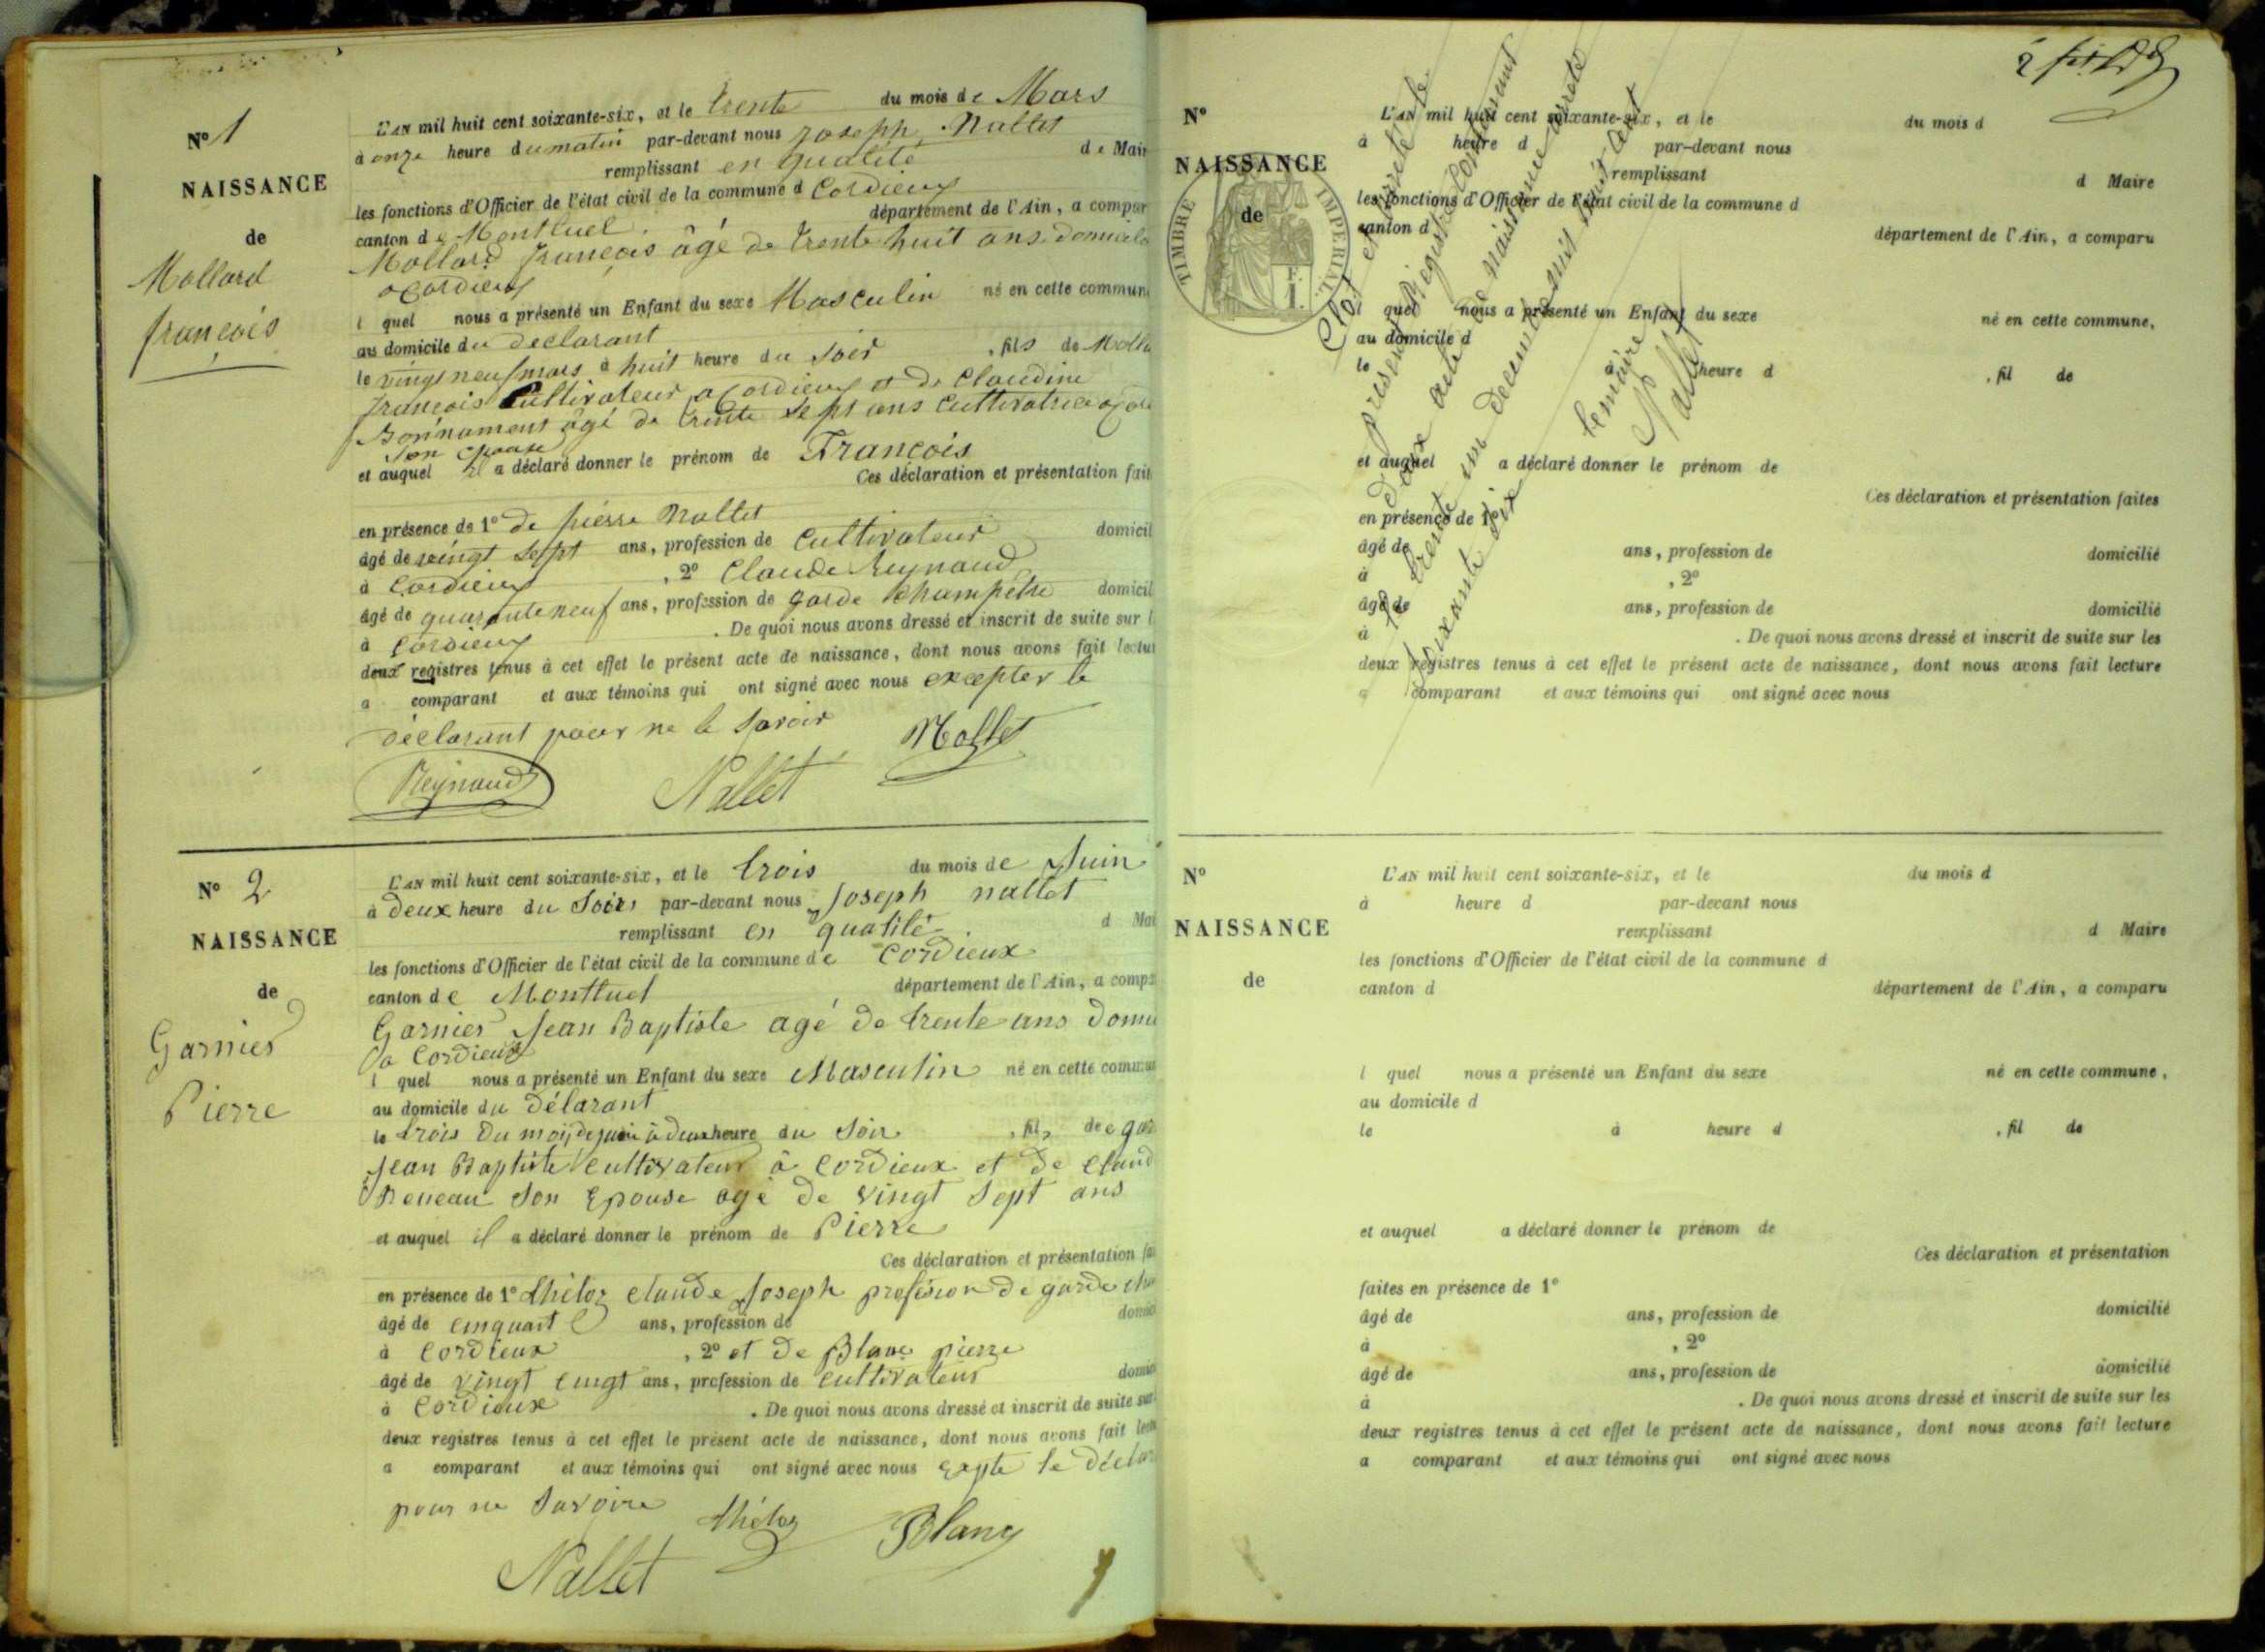 N° 1
NAISSANCE
de
Mollard
françois
L'AN mil huit cent soixante-six, et le trente du mois de Mars
à onze heure du matin par-devant nous joseph Nallet
remplissant en qualité de Mair
les fonctions d'Officier de l'état civil de la commune d Cordieux
canton de Montluel département de l'Ain, a compar
Mollard françois âgé de trente huit ans domicile
a Cordieux
l quel nous a présenté un Enfant du sexe Masculin né en cette commun
au domicile du declarant
le vingt neuf mars à huit heure du soir , fils de Molla
françois Cultivateur a Cordieux et de Claudine
âgé de trente sept ans Cultivatrice a Cor
son epouse
et auquel il a déclaré donner le prénom de François
Ces déclaration et présentation fait
en présence de 1° de pierre Nallet
âgé de vingt sept ans, profession de Cultivateur domicil
à Cordieux , 2° Claude Reynaud
âgé de quarante neuf ans, profession de garde champetre domicil
à Cordieux . De quoi nous avons dressé et inscrit de suite sur l
deux registres tenus à cet effet le présent acte de naissance, dont nous avons fait lectu
a comparant et aux témoins qui ont signé avec nous excepter le
déclarant pour ne le savoir
Nallet
Reynaud
Nallet
N° 2
NAISSANCE
de
Garnier
Pierre
L'AN mil huit cent soixante-six, et le trois du mois de Juin
à deux heure du Soir par-devant nous Joseph nallet
remplissant en qualité d Mai
les fonctions d'Officier de l'état civil de la commune de Cordieux
canton de Montluel département de l'Ain, a compa
Garnier Jean Baptiste agé de trente ans domi
a Cordieux
l quel nous a présenté un Enfant du sexe Masculin né en cette commun
au domicile du délarant
le trois du mois de juin à deux heure du Soir , fils de gar
Jean Baptiste cultivateur à Cordieux et de Claud
son Epouse agé de vingt sept ans
et auquel il a déclaré donner le prénom de Pierre
Ces déclaration et présentation fai
en présence de 1° théloz claude Joseph profésion de garde cha
âgé de cinquant ans, profession de domic
à Cordieux , 2° et de Blanc pierre
âgé de vingt cinqt ans, profession de cultivateur domic
à Cordieux . De quoi nous avons dressé et inscrit de suite sur
deux registres tenus à cet effet le présent acte de naissance, dont nous avons fait lect
a comparant et aux témoins qui ont signé avec nous le déclar
pour ne savoire théloz Blanc
Nallet
N°
NAISSANCE
de
TIMBRE IMPERIAL
L'AN mil huit cent soixante-six, et le du mois d
à heure d par-devant nous
remplissant d Maire
les fonctions d'Officier de l'état civil de la commune d
canton d département de l'Ain, a comparu
l quel nous a présenté un Enfant du sexe né en cette commune,
au domicile d
le à heure d , fil de
et auquel a déclaré donner le prénom de
Ces déclaration et présentation faites
en présence de 1°
âgé de ans, profession de domicilié
à , 2°
âgé de ans, profession de domicilié
à . De quoi nous avons dressé et inscrit de suite sur les
deux registres tenus à cet effet le présent acte de naissance, dont nous avons fait lecture
a comparant et aux témoins qui ont signé avec nous
Clos et arreté le
présent Régistre Contenant
deux acte de naissance arreté
le trente un decembre mil huit cent
soixante six
le maire
Nallet
N°
NAISSANCE
de
L'AN mil huit cent soixante-six, et le du mois d
à heure d par-devant nous
remplissant d Maire
les fonctions d'Officier de l'état civil de la commune d
canton d département de l'Ain, a comparu
l quel nous a présenté un Enfant du sexe né en cette commune,
au domicile d
le à heure d , fil de
et auquel a déclaré donner le prénom de
Ces déclaration et présentation
faites en présence de 1°
âgé de ans, profession de domicilié
à , 2°
âgé de ans, profession de domicilié
à . De quoi nous avons dressé et inscrit de suite sur les
deux registres tenus à cet effet le présent acte de naissance, dont nous avons fait lecture
a comparant et aux témoins qui ont signé avec nous